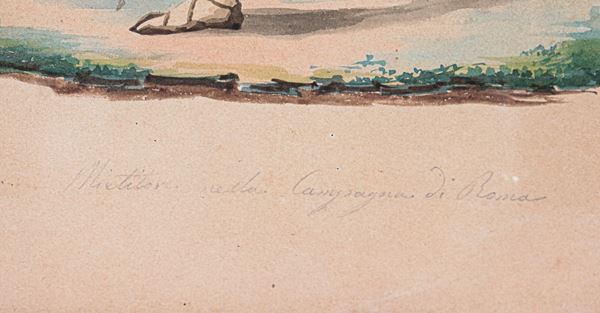 Mietitor nella Campagna di Roma